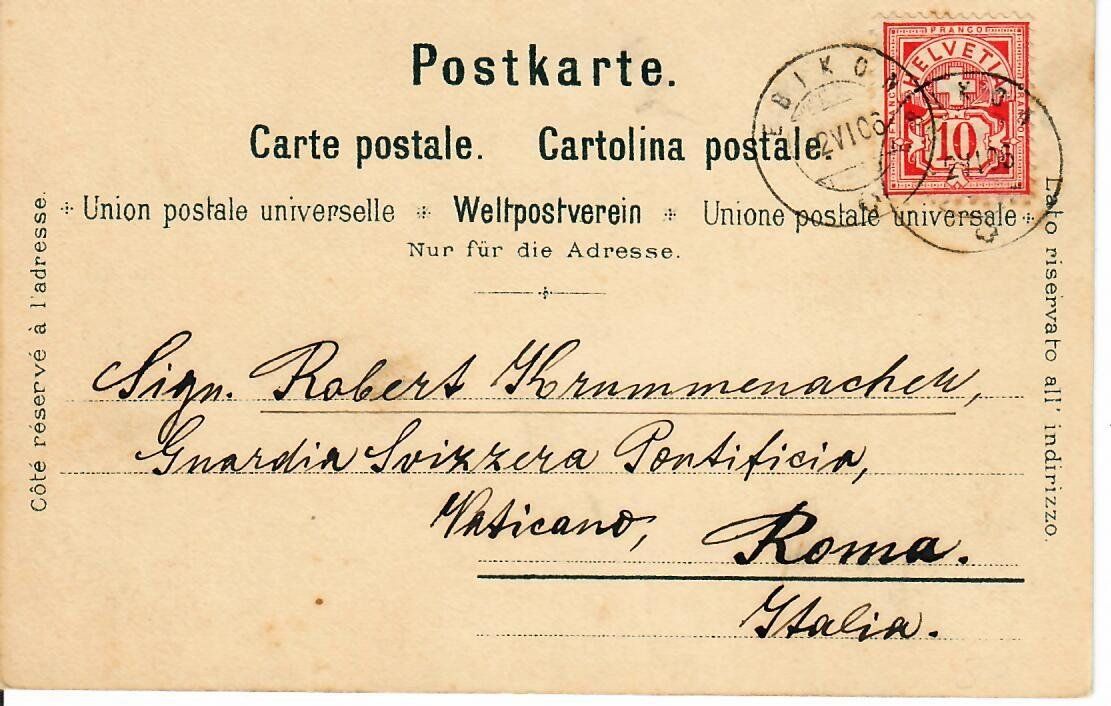 Postkarte.
Carte postale. Cartolina postale.
Union postale universelle Weltpostverein Unione postale universale
Nur für die Adresse.
Côté réservé à l'adresse.
Lato riservato all' indirizzo.
FRANCO
HELVETIA
10
EBIKON
2 VI 06
EBIKON
2 VI 06
Sign. Robert Krummenacher,
Guardia Svizzera Pontificia,
Vaticano, Roma.
Italia.